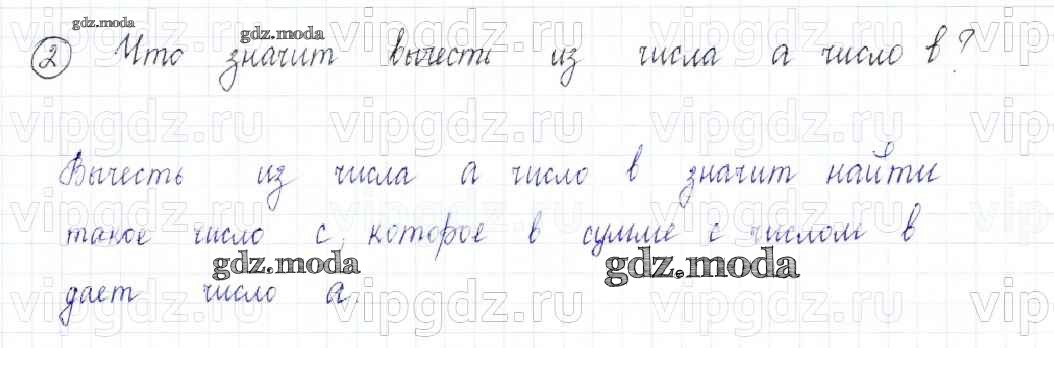 gdz.moda
gdz.moda
② Что значит вычесть из числа а число в?
vipgdz.ru vipgdz.ru vipgdz.ru vip
Вычесть из числа а число в значит найти
vipgdz.ru vipgdz.ru vipgdz.ru vip
такое число с, которое в сумме с числом в
gdz.moda gdz.moda
дает число а.
vipgdz.ru vipgdz.ru vipgdz.ru vip